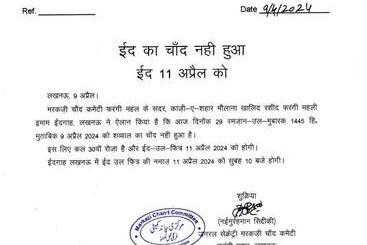 Ref. Date 9/4/2024
ईद का चाँद नही हुआ
ईद 11 अप्रैल को
लखनऊ, 9 अप्रैल।
मरकज़ी चाँद कमेटी फरंगी महल के सदर, काज़ी-ए-शहार मौलाना खालिद रशीद फरंगी महली
इमाम ईदगाह, लखनऊ ने ऐलान किया है कि आज दिनांक 29 रमज़ान-उल-मुबारक 1445 हि.
मुताबिक 9 अप्रैल 2024 को शव्वाल का चाँद नही हुआ है।
इस लिए कल 30वाँ रोज़ा है और ईद-उल-फित्र 11 अप्रैल 2024 को होगी।
ईदगाह लखनऊ में ईद उल फित्र की नमाज 11 अप्रैल 2024 को सुबह 10 बजे होगी।
शुक्रिया
(नईमुर्रहमान सिद्दीकी)
जनरल सेक्रेट्री मरकज़ी चाँद कमेटी
Markazi Chand Committee